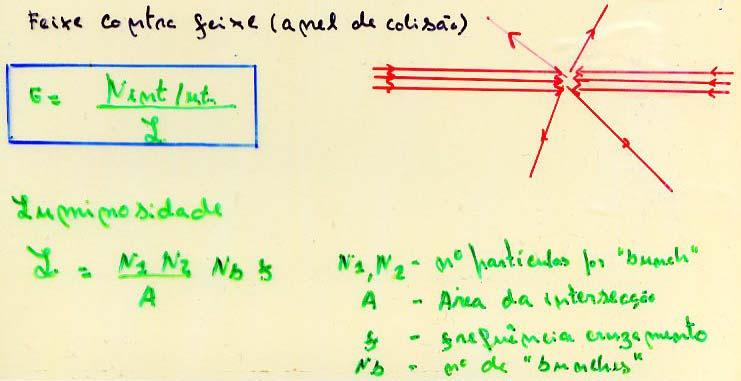 Feixe contra feixe (anel de colisão)
σ = Nint/ut.
ℒ
Luminosidade
ℒ = N1 N2 Nb f
A
N1, N2 - nº partículas por "bunch"
A - Área da intersecção
f - frequência cruzamento
Nb - nº de "bunches"